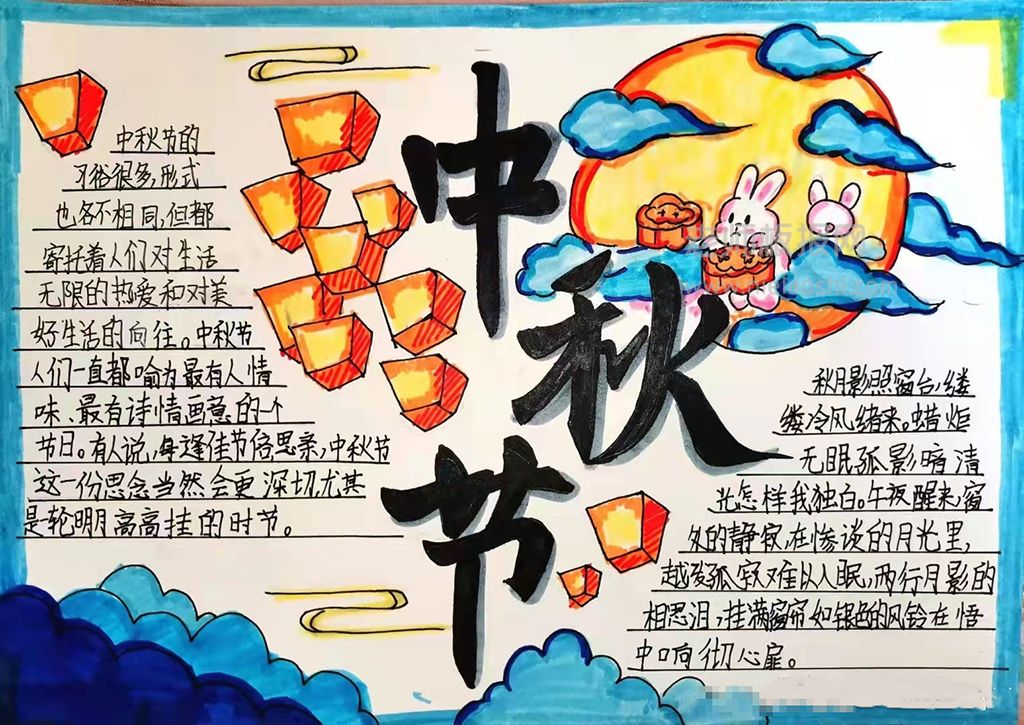 中秋节
中秋节的
习俗很多,形式
也各不相同,但都
寄托着人们对生活
无限的热爱和对美
好生活的向往。中秋节
人们一直都喻为最有人情
味、最有诗情画意的一个
节日。有人说,每逢佳节倍思亲,中秋节
这一份思念当然会更深切,尤其
是轮明月高高挂的时节。
秋月影照窗台,缕
缕冷风绪来。蜡炬
无眠孤影暗清
光怎样我独白。午夜醒来,窗
外的静寂,在惨谈的月光里,
越发孤寂难以入眠,两行月影的
相思泪,挂满窗帘如银色的风铃在悟
中响彻心扉。